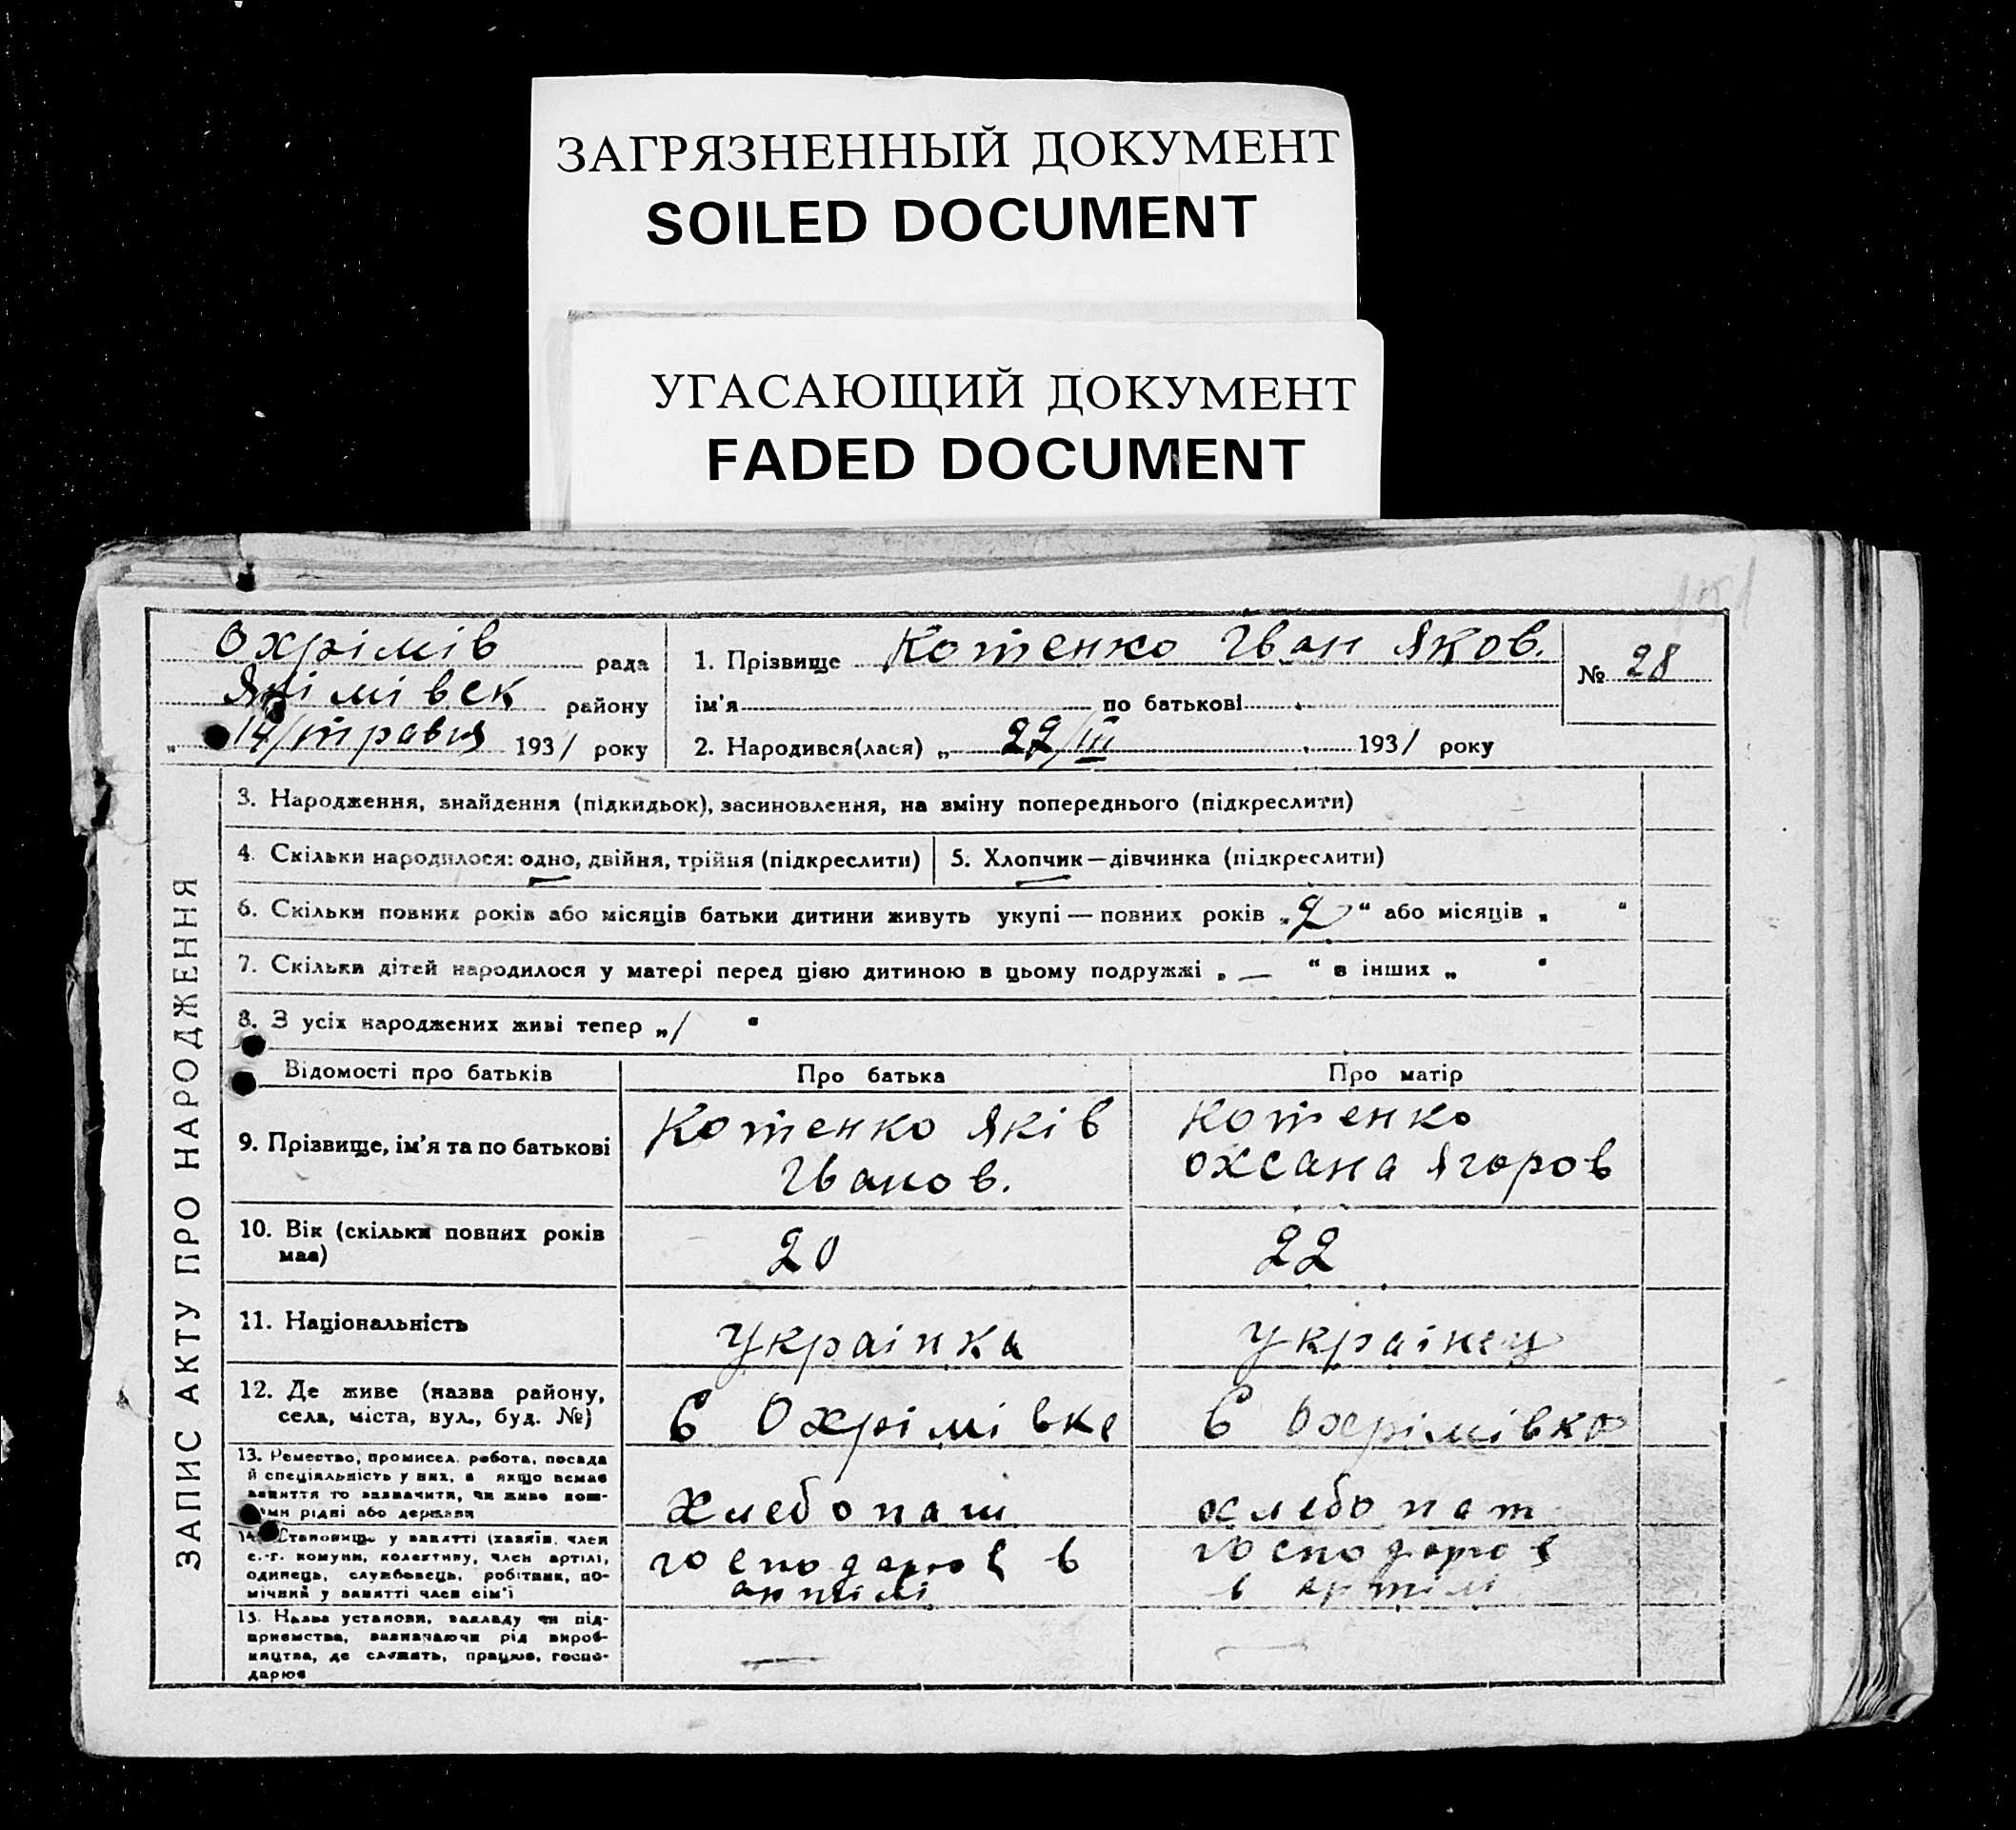 ЗАГРЯЗНЕННЫЙ ДОКУМЕНТ
SOILED DOCUMENT
УГАСАЮЩИЙ ДОКУМЕНТ
FADED DOCUMENT
Охрімів рада
Якімівск району
„ 14/травня 1931 року
1. Прізвище Котенко Іван Яков.
ім'я по батькові
2. Народився(лася) „ 29/III 1931 року
№ 28
ЗАПИС АКТУ ПРО НАРОДЖЕННЯ
3. Народження, знайдення (підкидьок), засиновлення, на зміну попереднього (підкреслити)
4. Скільки народилося: одно, двійня, трійня (підкреслити)
5. Хлопчик—дівчинка (підкреслити)
6. Скільки повних років або місяців батьки дитини живуть укупі — повних років „2“ або місяців „ “
7. Скільки дітей народилося у матері перед цією дитиною в цьому подружжі „ — “ в інших „ “
8. З усіх народжених живі тепер „1 “
Відомості про батьків
Про батька
Про матір
9. Прізвище, ім'я та по батькові
Котенко Яків
Іванов.
Котенко
Оксана Ягоров
10. Вік (скільки повних років
має)
20
22
11. Національність
Украінка
Украінец
12. Де живе (назва району,
села, міста, вул., буд. №)
С Охрімівке
С Охрімівка
13. Ремество, промисел, робота, посада
й спеціяльність у них, а якщо немає
заняття то зазначити, чи живе кош-
тами рідні або держави
хлебопаш
хлебопаш
14. Становище у занятті (хазяїн, член
с.-г. комуни, колективу, член артілі,
одинець, службовець, робітник, по-
мічний у занятті член сім'ї
господарює в
артілі
господарює
в артілі
15. Назва установи, закладу чи під-
приємства, зазначаючи рід вироб-
ництва, де служить, працює, госпо-
дарює
—
—